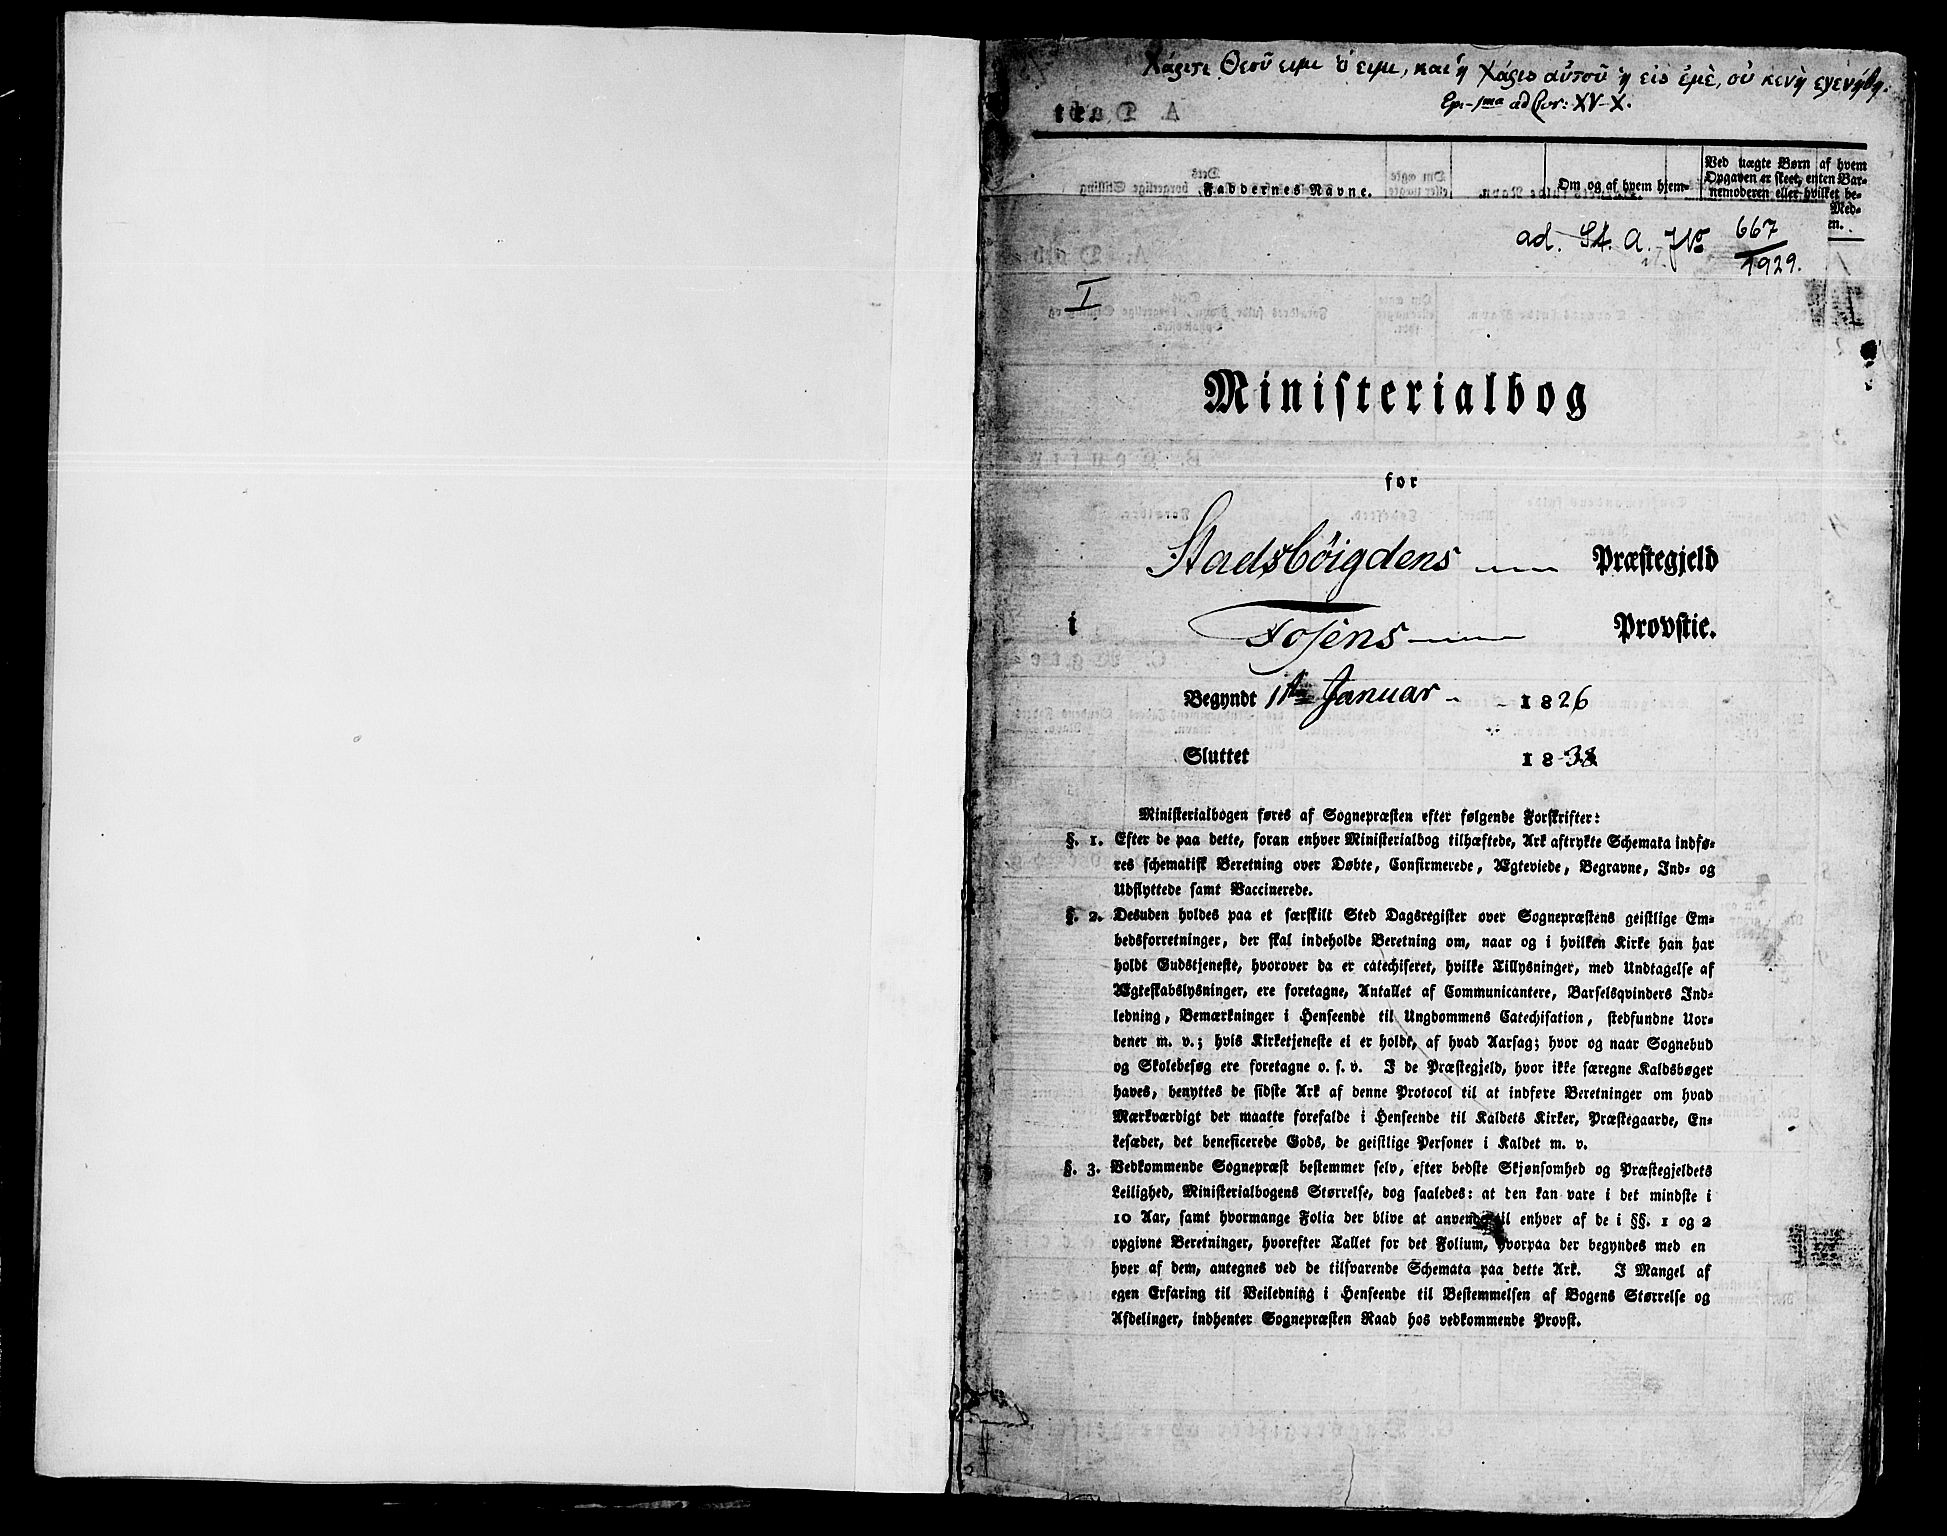 Χάριτι Θεοῦ ειμι ὁ ειμι, και ἡ Χάρις αὐτοῦ ἡ εις ἐμὲ, οὐ κενὴ εγενήθη.
Ep. 1ma ad Cor: XV-X.
Faddernes Navne.
Om og af hvem hjem-
Ved uægte Børn af hvem
Opgaven er skeet, enten Bar-
nemoderen eller hvilket be-
Med-
en.
ad. St. A. JNo 667/1929.
I
Ministerialbog
for
Stadsbøigdens Præstegjeld
i Fosens Provstie.
Begyndt 1ste Januar 1826
Sluttet 1838
Ministerialbogen føres af Sognepræsten efter følgende Forskrifter:
§. 1. Efter de paa dette, foran enhver Ministerialbog tilhæftede, Ark aftrykte Schemata indfø-
res schematisk Beretning over Døbte, Confirmerede, Ægteviede, Begravne, Ind- og
Udflyttede samt Vaccinerede.
§. 2. Desuden holdes paa et særskilt Sted Dagsregister over Sognepræstens geistlige Em-
bedsforretninger, der skal indeholde Beretning om, naar og i hvilken Kirke han har
holdt Gudstjeneste, hvorover da er catechiseret, hvilke Tillysninger, med Undtagelse af
Ægteskabslysninger, ere foretagne, Antallet af Communicantere, Barselsqvinders Ind-
ledning, Bemærkninger i Henseende til Ungdommens Catechisation, stedfundne Uor-
dener m. v.; hvis Kirketjeneste ei er holdt, af hvad Aarsag; hvor og naar Sognebud
og Skolebesøg ere foretagne o. s. v. I de Præstegjeld, hvor ikke særegne Kaldsbøger
haves, benyttes de sidste Ark af denne Protocol til at indføre Beretninger om hvad
Mærkværdigt der maatte forefalde i Henseende til Kaldets Kirker, Præstegaarde, En-
kesæder, det beneficerede Gods, de geistlige Personer i Kaldet m. v.
§. 3. Vedkommende Sognepræst bestemmer selv, efter bedste Skjønsomhed og Præstegjeldets
Leilighed, Ministerialbogens Størrelse, dog saaledes: at den kan vare i det mindste i
10 Aar, samt hvormange Folia der blive at anvende til enhver af de i §§. 1 og 2
opgivne Beretninger, hvorefter Tallet for det Folium, hvorpaa der begyndes med en
hver af dem, antegnes ved de tilsvarende Schemata paa dette Ark. I Mangel af
egen Erfaring til Veiledning i Henseende til Bestemmelsen af Bogens Størrelse og
Afdelinger, indhenter Sognepræsten Raad hos vedkommende Provst.